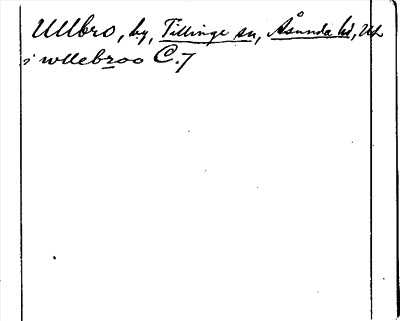 Ullbro, by, Tillinge sn, Åsunda hd, Upl
i wllebroo C.7